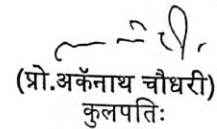 (प्रो.अर्कनाथ चौधरी)
कुलपतिः